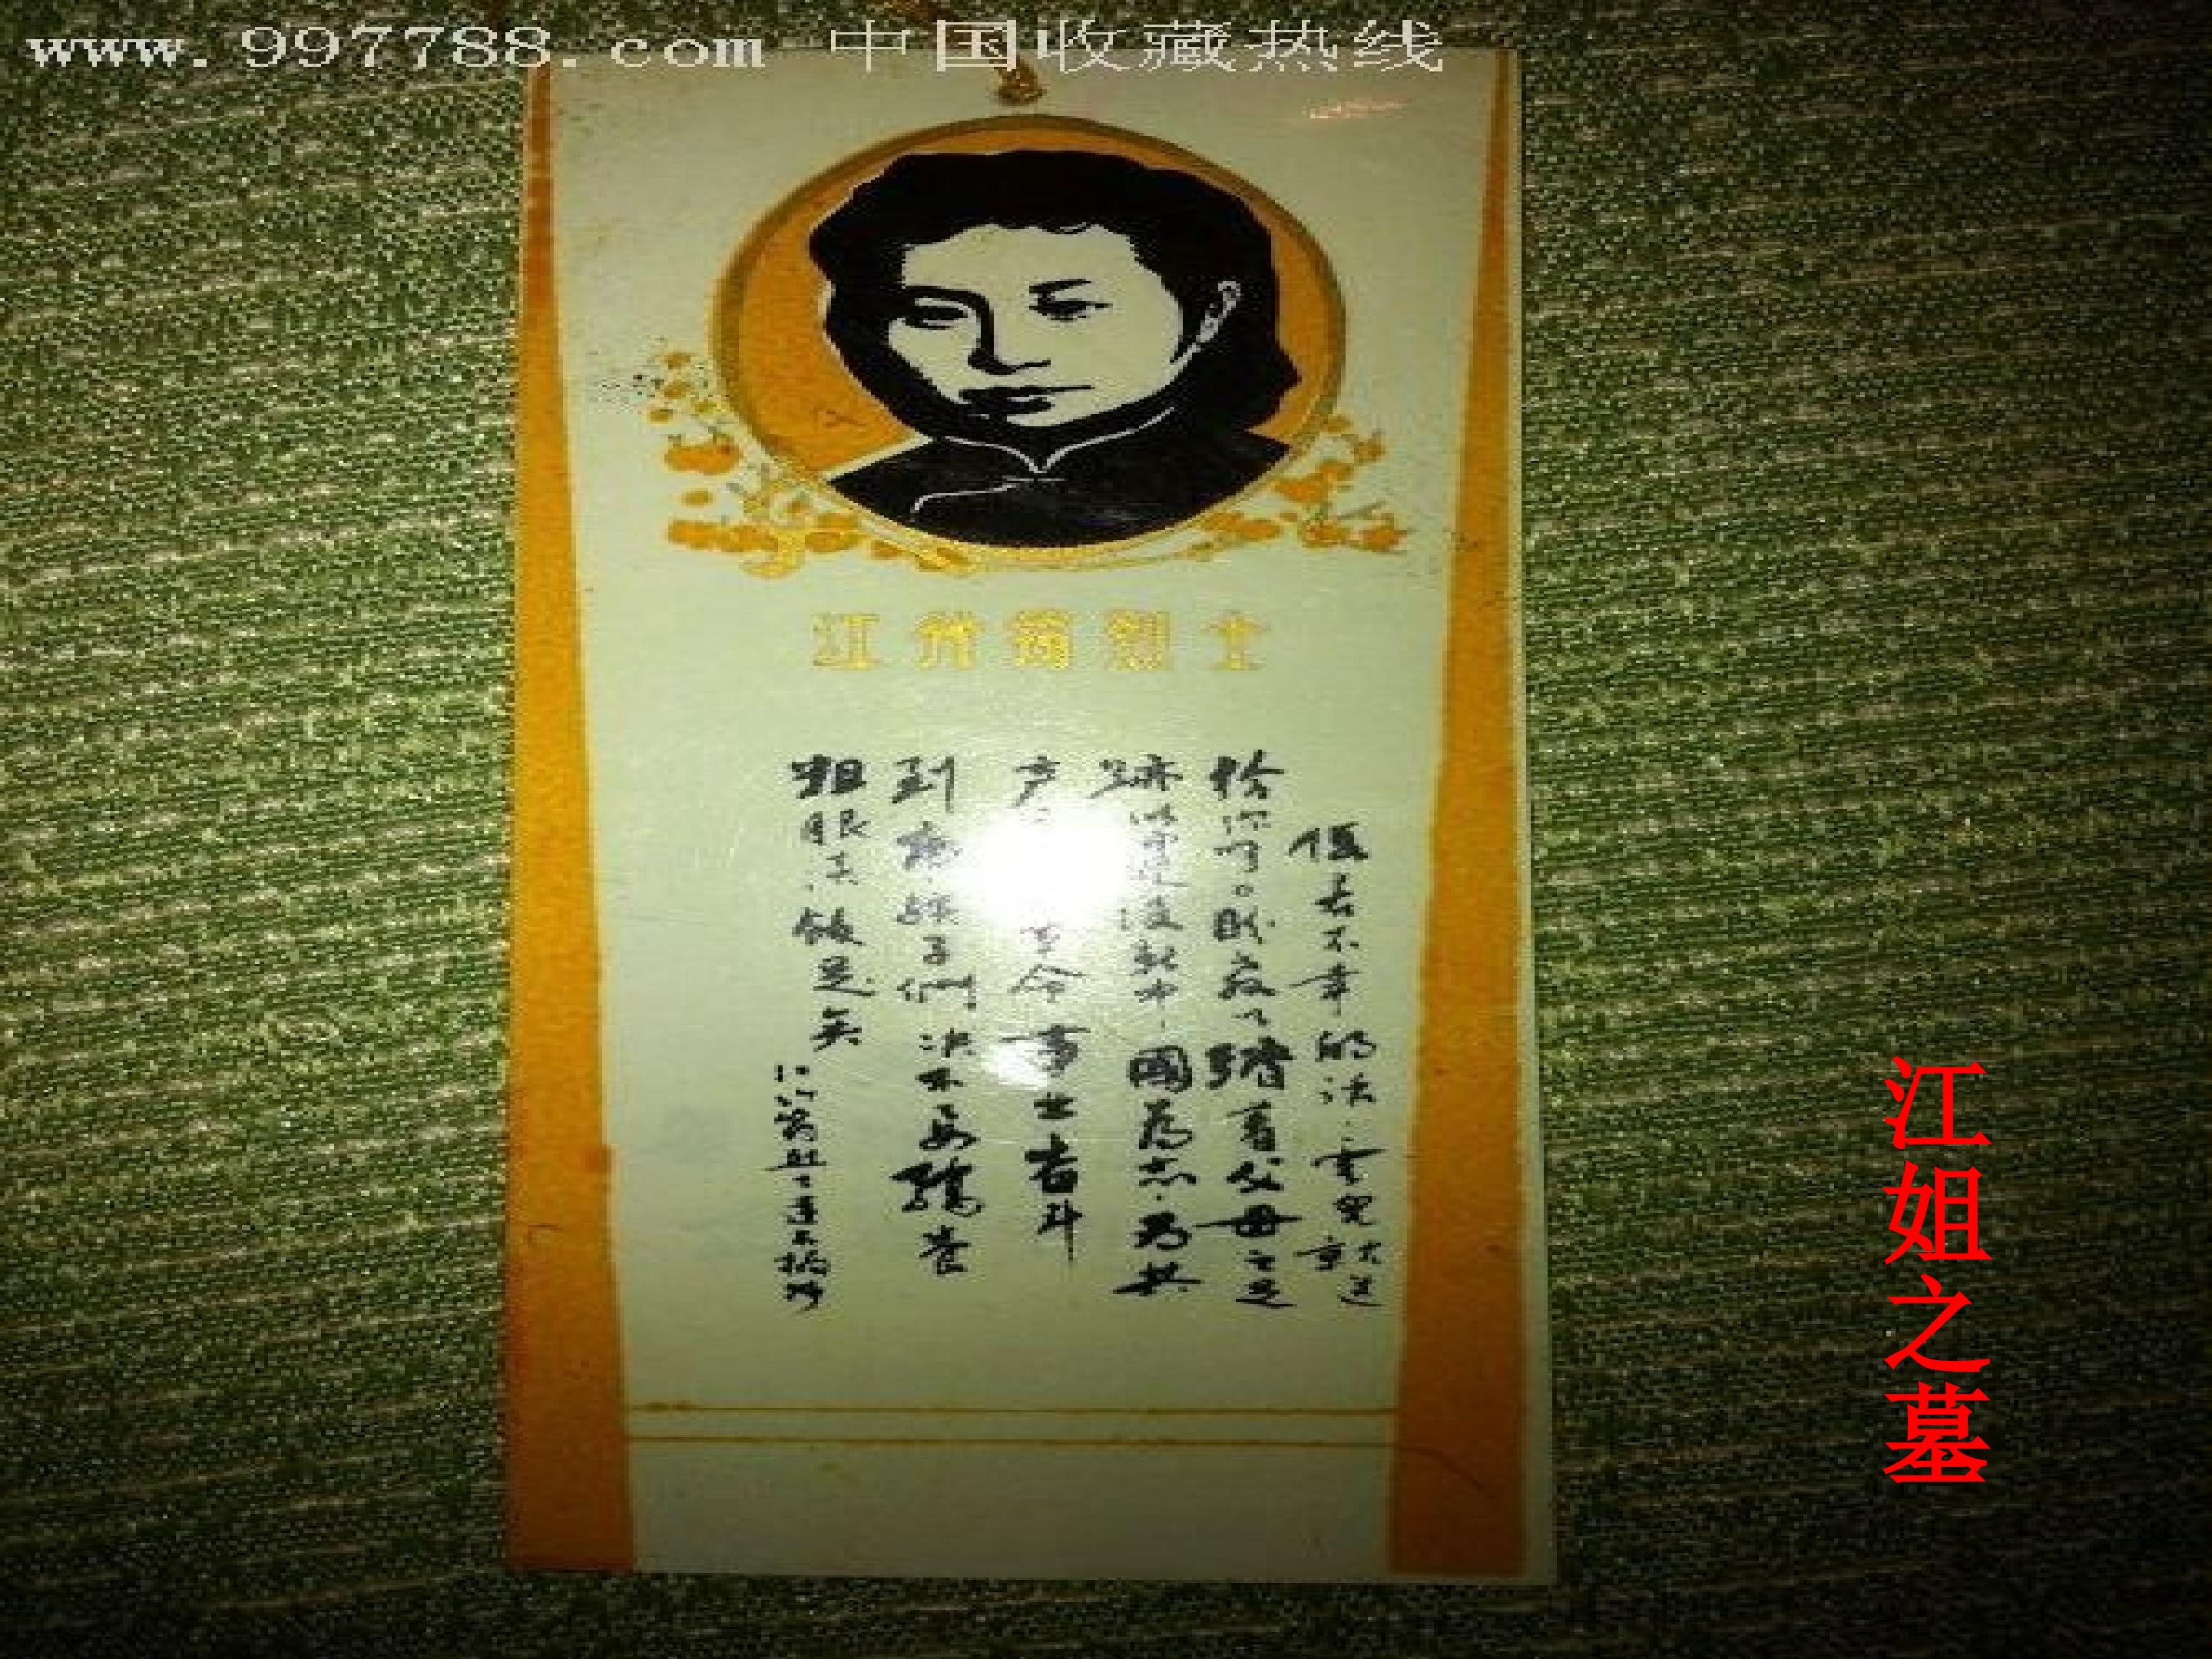 www.997788.com 中国收藏热线
江竹筠烈士
假若不幸的话,雲兒 送
给你们。盼教以踏着父母之足
迹,以建设新中国为志,为共
产 革命事业奋斗
到底。孩子們决不要驕养
粗服淡饭足矣
江竹筠烈士遗书摘抄
江姐之墓